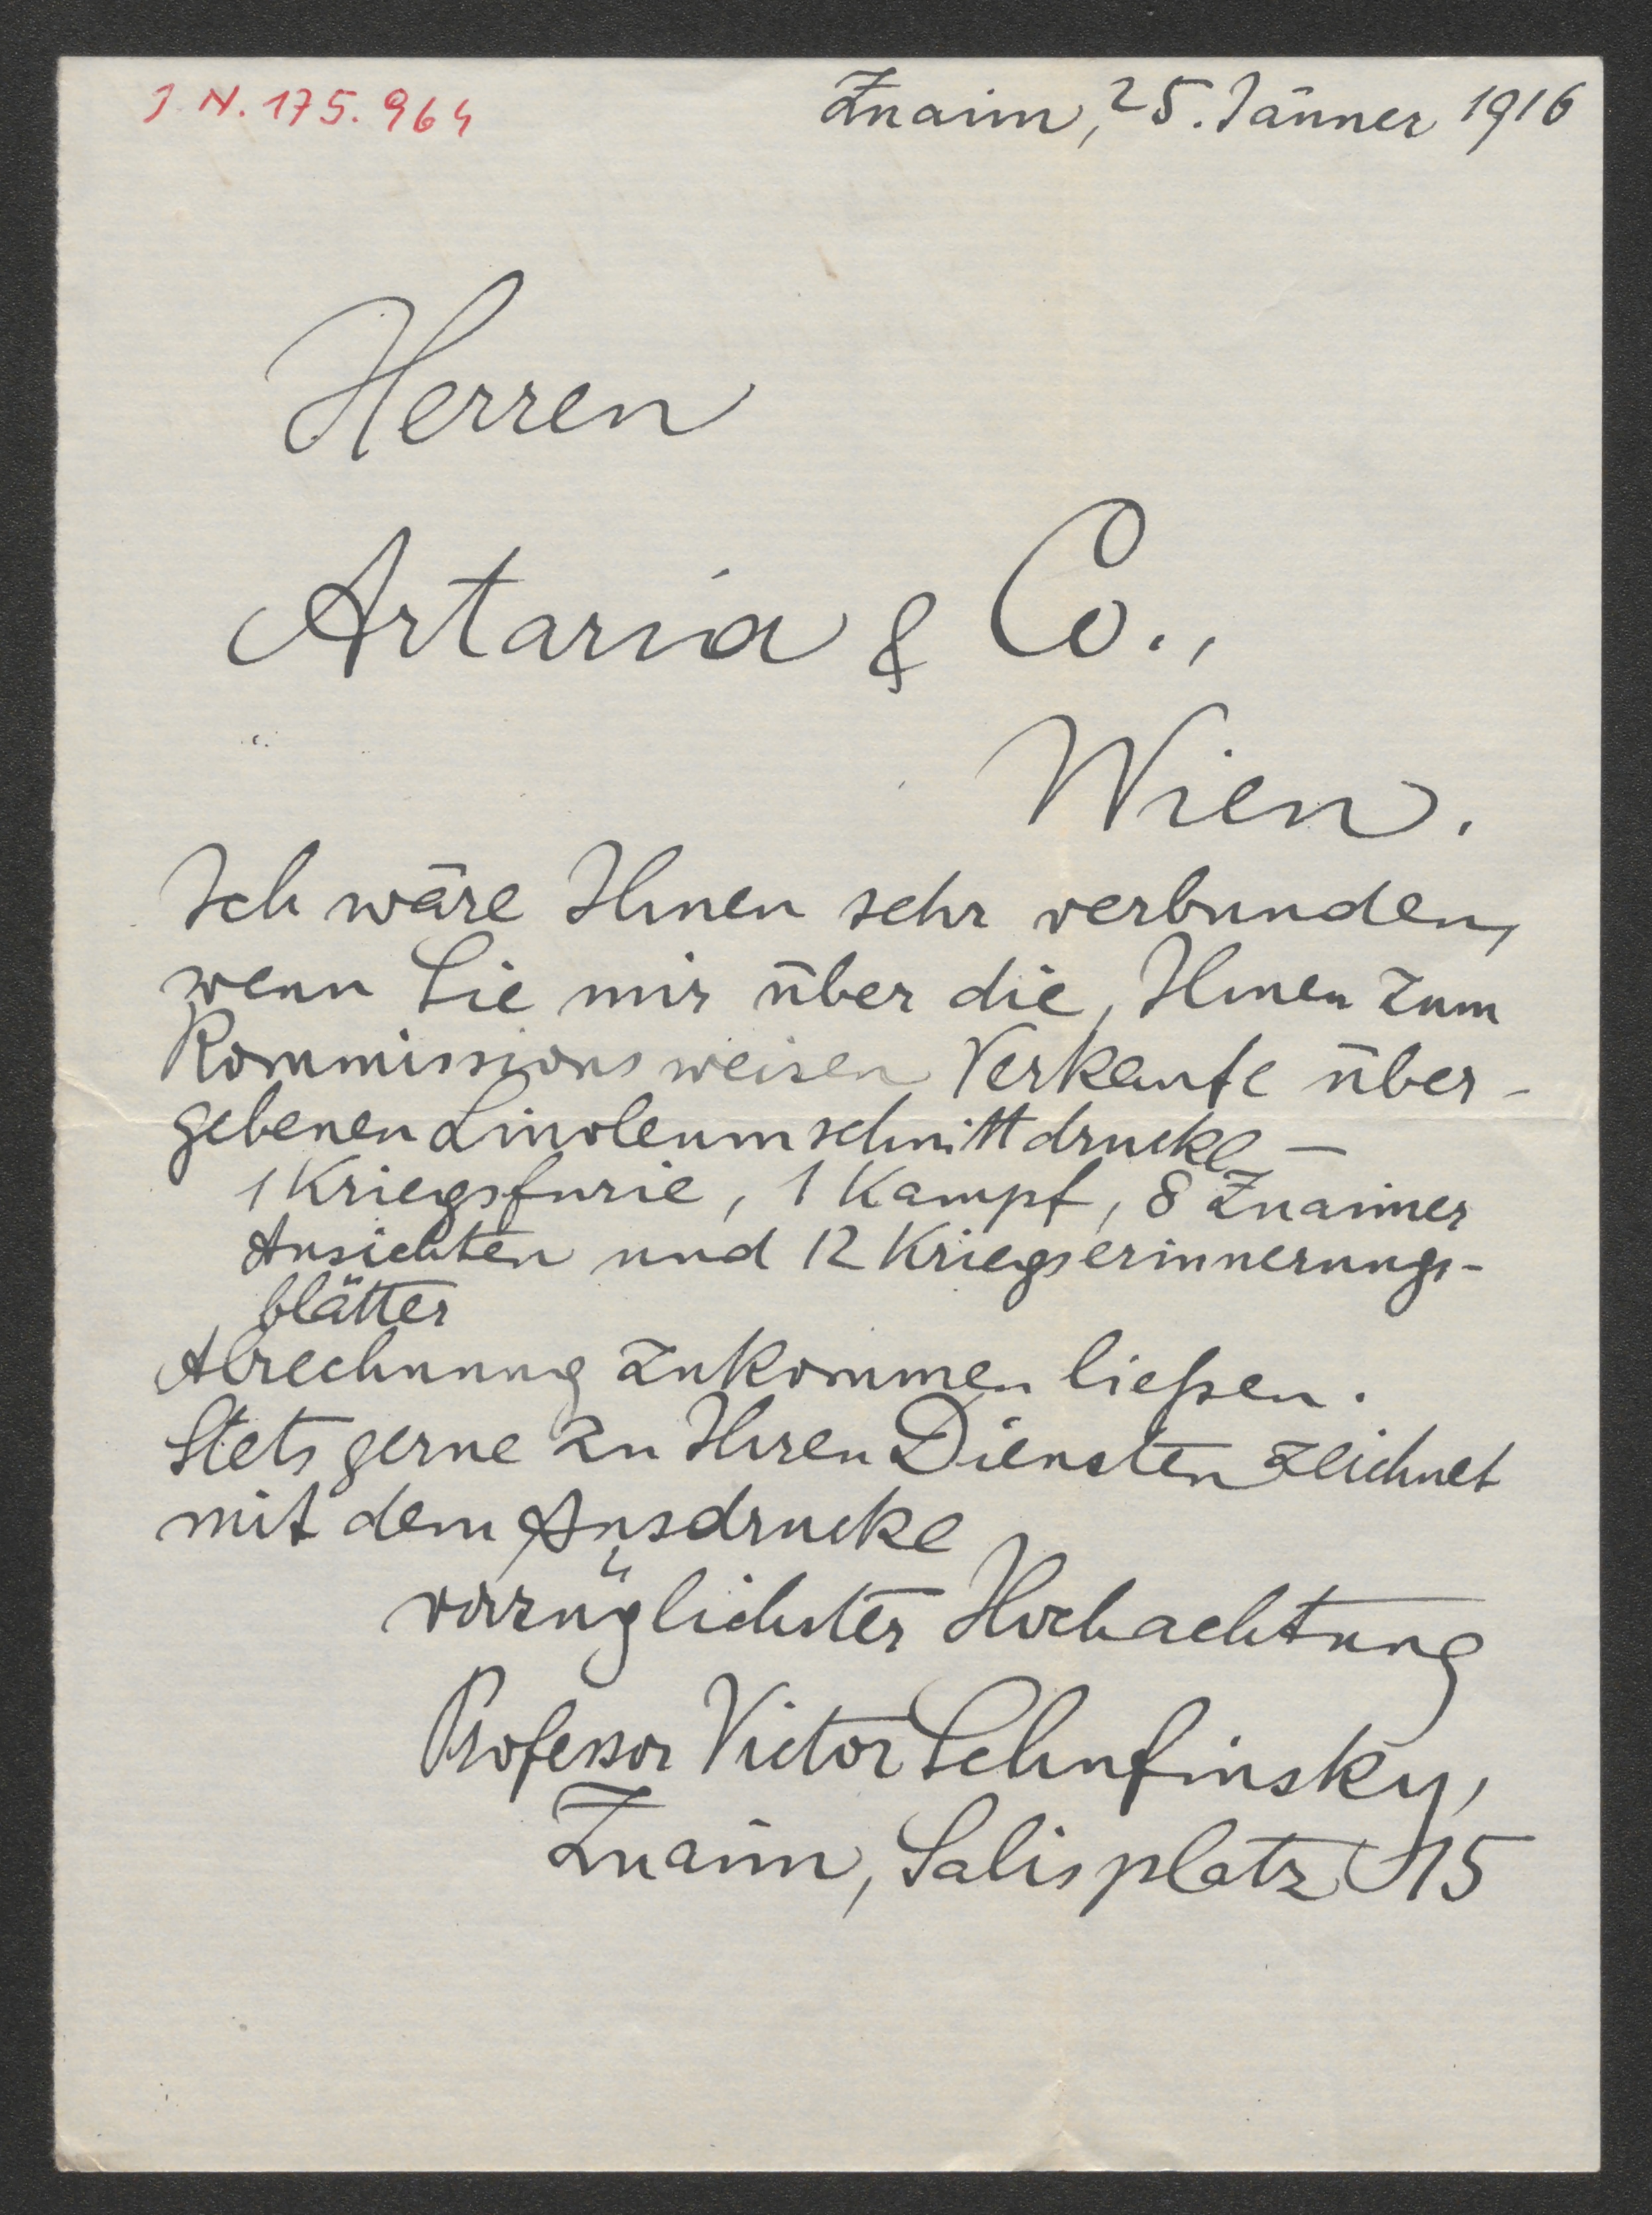 J. N. 175.964
Znaim, 25. Jänner 1916
Herren
Artaria & Co.,
Wien.
Ich wäre Ihnen sehr verbunden,
wenn Sie mir über die, Ihnen zum
Kommissionsweisen Verkaufe über-
gebenen Linoleumschnittdrucke –
1 Kriegsfurie, 1 Kampf, 8 Znaimer
Ansichten und 12 Kriegserinnerungs-
blätter
Abrechnung zukommen ließen.
Stets gerne zu Ihren Diensten zeichnet
mit dem Ausdrucke
vorzüglichster Hochachtung
Professor Victor Schufinsky,
Znaim, Salisplatz 15